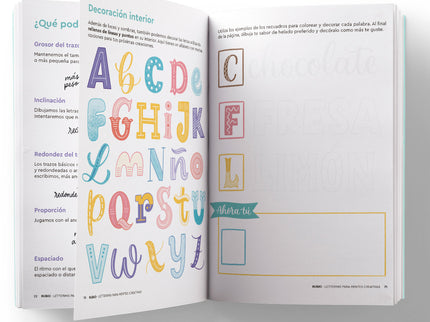 ¿Qué pod
Grosor del trazo
Mantenemos el tam
o más pequeña pas
más
peso
Inclinación
Dibujamos las letras
intentaremos que n
Redondez del t
Los trazos básicos
y redondeadas o ar
escribimos, más an
redonde
Proporción
Jugamos con el anc
Espaciado
El ritmo con el que
espaciado o distan
Decoración interior
Además de luces y sombras, también podemos decorar las letras
rellenos de líneas y puntos en su interior. Aquí tienes un alfabeto con
opciones para tus próximas creaciones.
A b C D e
F G H I j K
L m N ñ o
p q r s t u
V w x y z
RUBIO · LETTERING PARA MENTES CREATIVAS
Utiliza los ejemplos de los recuadros para colorear y decorar cada palabra. Al final
de la página, dibuja tu sabor de helado preferido y decóralo como más te guste.
C chocolate
F
L
Ahora tú
RUBIO · LETTERING PARA MENTES CREATIVAS